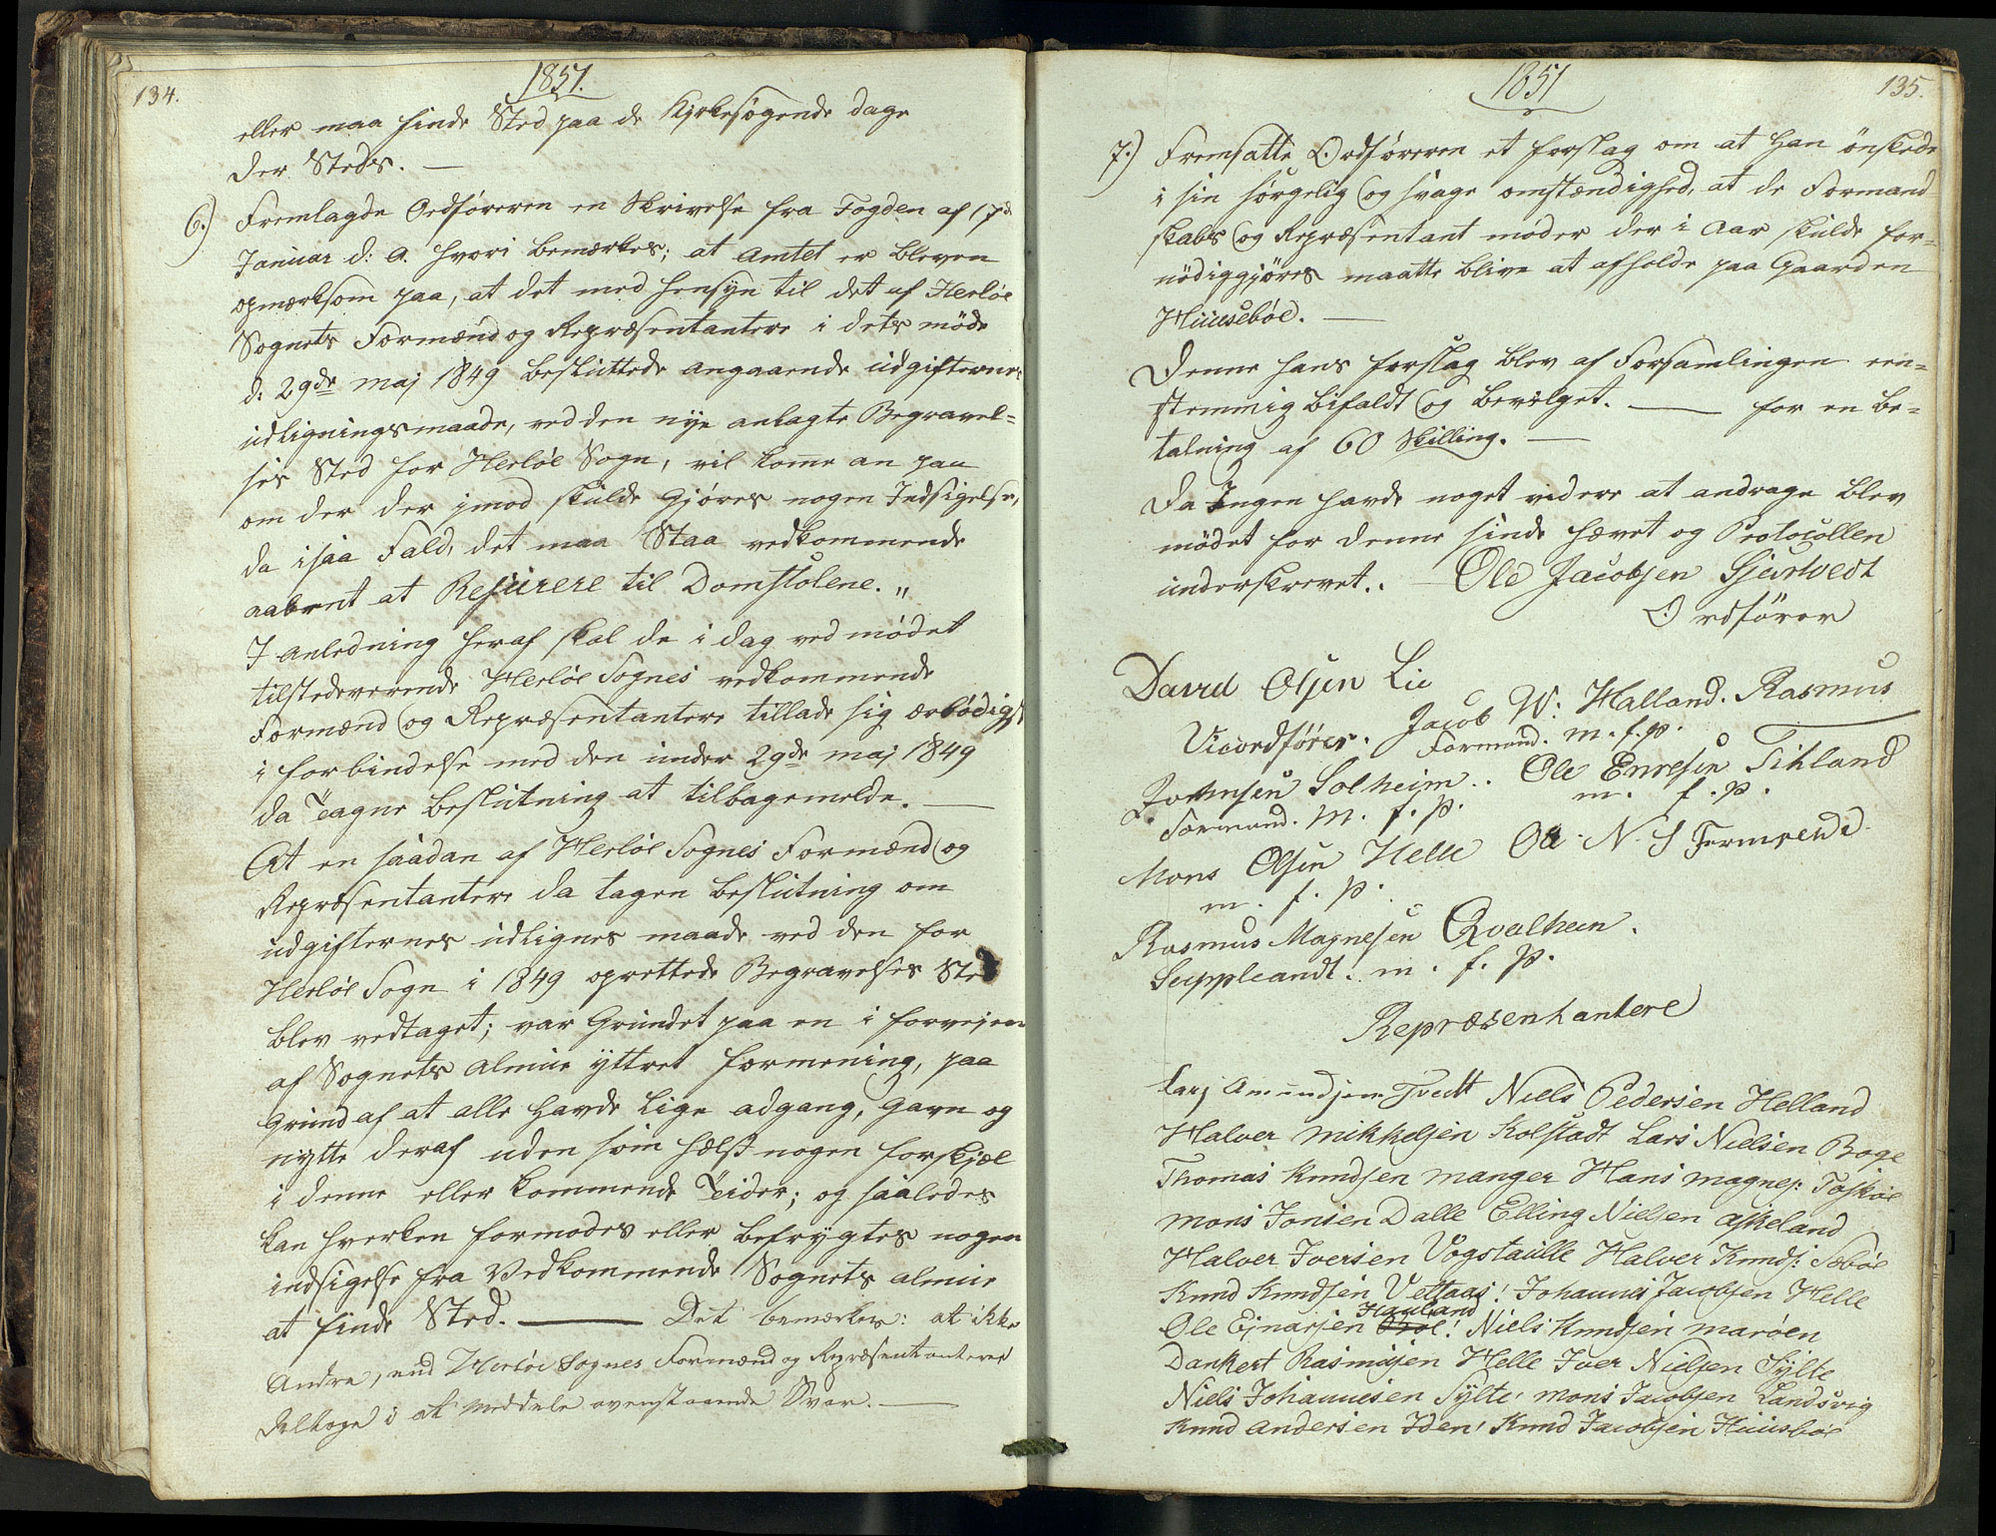 134.
1851.
eller maa finde Sted paa de Kirkesögende dage
der Steds. —
6.) Fremlagde Ordföreren en Skrivelse fra Fogden af 17de
Januar d: A. hvori bemærkes; at Amtet er bleven
opmærksom paa, at det med Hensyn til det af Herlöe
Sognets Formænd og Repræsentantere i dets möde
d: 29de maj 1849 besluttede angaaende udgifternes
udligningsmaade, ved den nye anlagte Begravel=
ses Sted for Herlöe Sogn, vil kome an paa
om der der jmod skulde Gjöres nogen Indsigelse,
da isaa Fald, det maa Staa vedkommende
aabent at Resurere til Domstolene. „
I anledning heraf skal de i dag ved mödet
tilstedeverende Herlöe Sognes vedkommende
Formænd og Repræsentantere tillade sig ærbödigst
i forbindelse med den under 29de maj 1849
da Teagne beslutning at tilbagemelde. —
At en saadan af Herlöe Sognes Formænd og
Repræsentantere da tagen beslutning om
udgifternes udlignes maade ved den for
Herlöe Sogn i 1849 oprettede Begravelses Sted
blev vedtaget; var Grundet paa en i forvejen
af Sognets Almue yttret formening, paa
Grund af at alle havde Lige adgang, Gavn og
nytte deraf uden som hælst nogen forskjæl
i denne eller kommende Teider; og saaledes
kan hverken formodes eller befrygtes nogen
indsigelse fra Vedkommende Sognets almue
at finde Sted. — Det bemærkes: at ikke
Andre, end Herlöe Sognes Formænd og Repræsentantere
deltoge i at meddele ovenstaaende Svar. —
1851
135.
7.) Fremsatte Ordföreren et forslag om at Han önskede
i sin sörgelig og svage omstændighed, at de Formand
skabs og Repræsentant möder der i Aar skulde for=
nödiggjöres maatte blive at afholde paa Gaarden
Huuseböe. —
Denne hans forslag blev af Forsamlingen een=
stemmig bifaldt og bevilget. — for en be=
talning af 60 Skilling. —
Da Ingen havde noget videre at andrage blev
mödet for denne sinde hævet og Protocollen
underskrevet.. Ole Jacobsen Gjertvedt
Ordförer
David Olsen Lie
Viceordförer. Jacob W: Halland. Rasmus
Formand. m. f. p.
Johnsen Solheim.. Ole Ennesen Tihland
Formand. m. f. p. m. f. p.
Mons Olsen Helle Ole N. S
m. f. p.
Rasmus Magnesen Qvalheim.
Suppleandt. m. f. p.
Repræsentantere
Larj Amundjen Tvedt Niels Pedersen Helland
Halver mikkelsen Kolstadt Lars Nielsen Boge
Thomas Knudsen manger Hans magnes: Toskøe
mons Jonsen Dalle Elling Nielsen Askeland
Halver Iversen Vogstaulle Halver Knuds: Søbøe
Knud Knudsen Vettaas! Johannes Jacobsen Helle
Haaland
Ole Ejnarsen Böe! Niels Knudsen maröen
Dankert Rasmusen Helle Iver Nielsen Sylte
Niels Johannesen Sylte, mons Jacobsen Landsvig
Knud Andersen Iden, Knud Jacobsen Huusböe